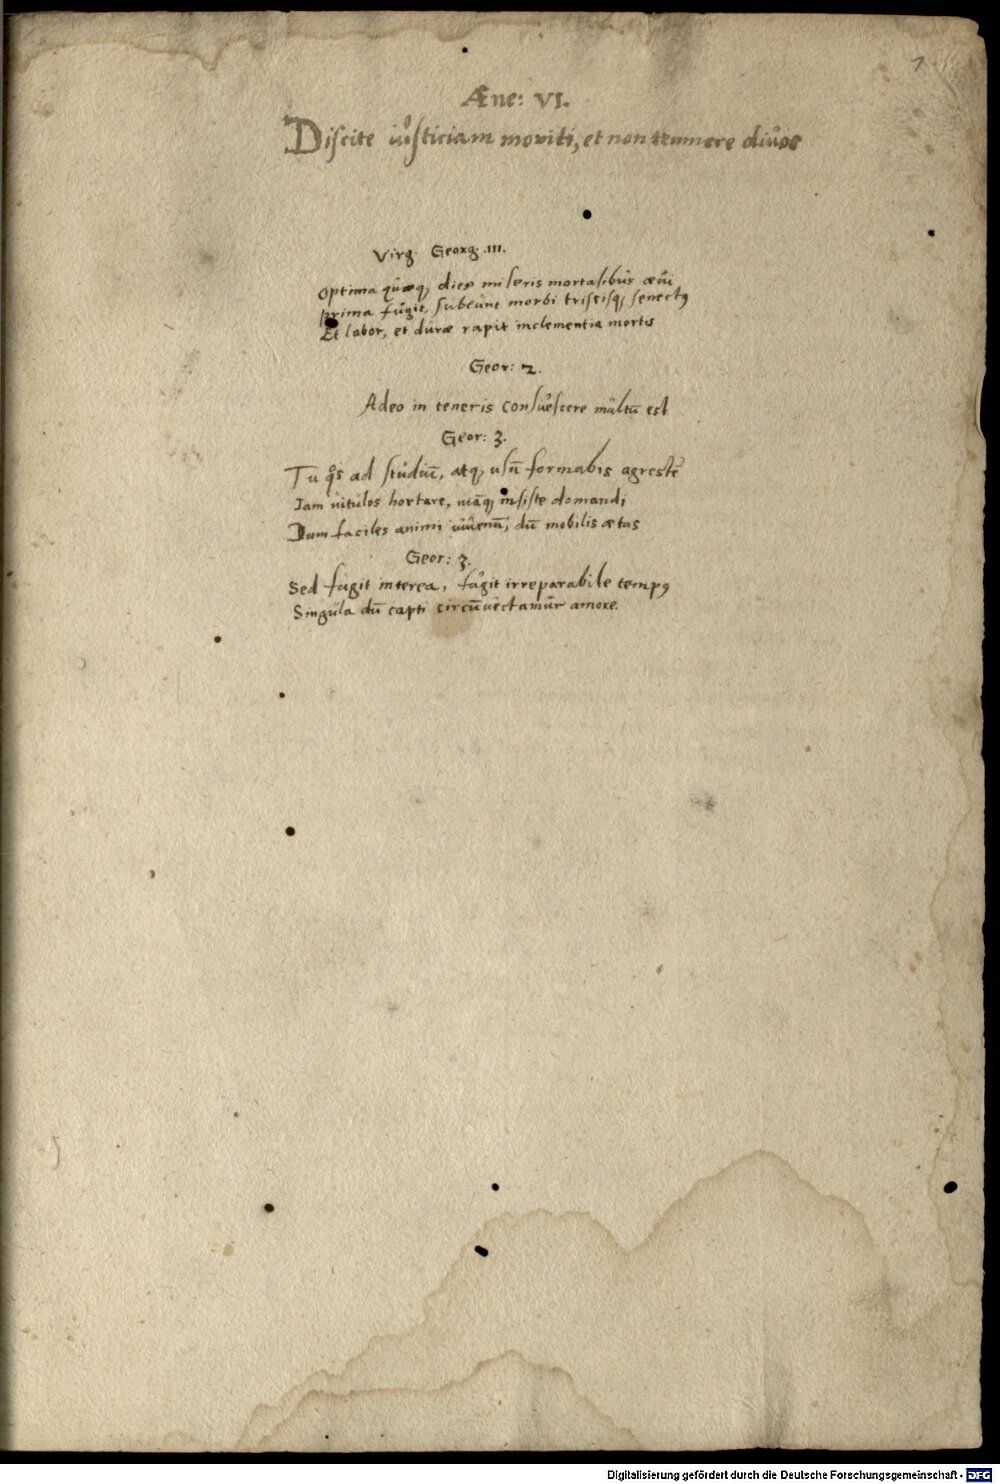 1
Æne: VI.
Discite iůsticiam moniti, et non temnere diůos
Virg. Georg. III.
Optima quæq; dies miseris mortalibůs æůi
prima fůgit, subeůnt morbi tristisq; senectꝰ
Et labor, et důræ rapit inclementia mortis
Geor: 2.
Adeo in teneris consůescere můltū est
Geor: 3.
Tu qͦs ad stůdiū, atq; usū formabis agrestē
Iam ůitůlos hortare, ůiāq; insiste domandi,
Dum faciles animi iůůenū, dū mobilis ætas
Geor: 3.
Sed fůgit interea, fůgit irreparabile tempꝰ
Singůla dū capti circūůectamůr amore.
Digitalisierung gefördert durch die Deutsche Forschungsgemeinschaft - DFG